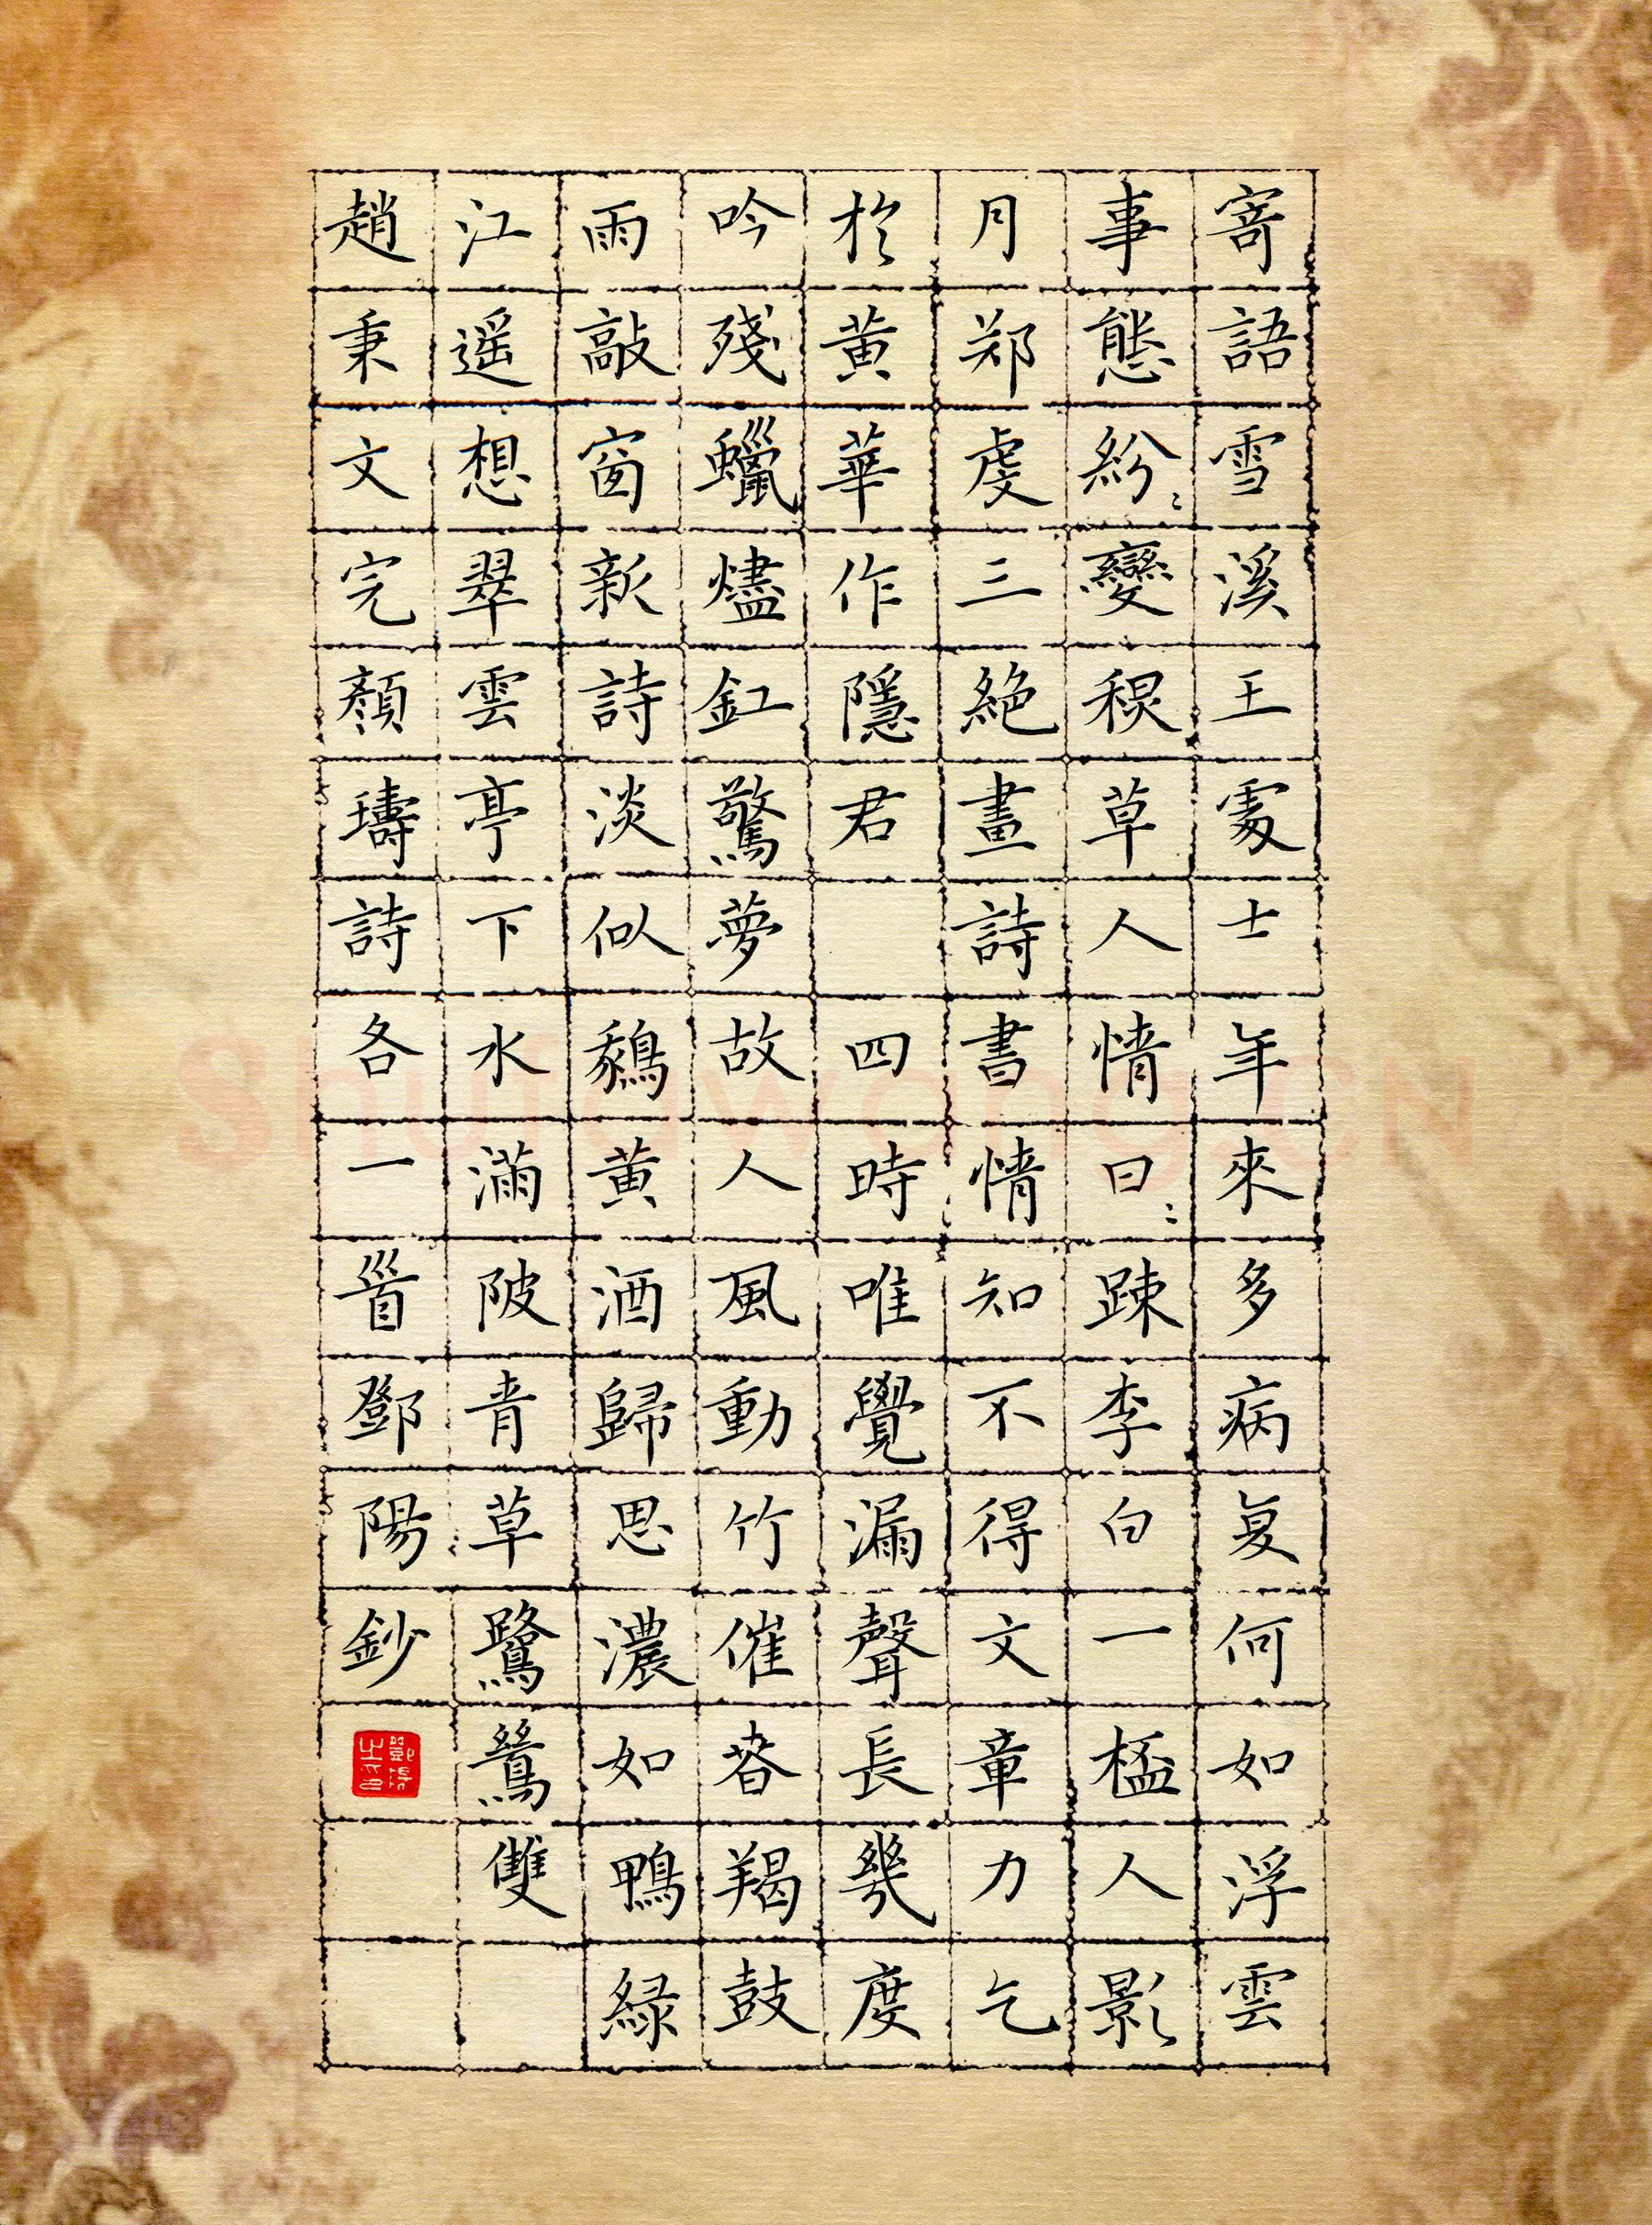 寄語雪溪王處士年来多病复何如浮雲
事態紛〻變秋草人情日〻踈李白一桮人影
月郑虔三絶畫詩書情知不得文章力乞
於黄華作隱君 四時唯覺漏聲長幾度
吟殘蠟燼釭驚夢故人風動竹催春羯鼓
雨敲窗新詩淡似鵝黄酒歸思濃如鴨緑
江遥想翠雲亭下水滿陂青草鷺鷥雙
趙秉文完顏璹詩各一首鄧陽鈔